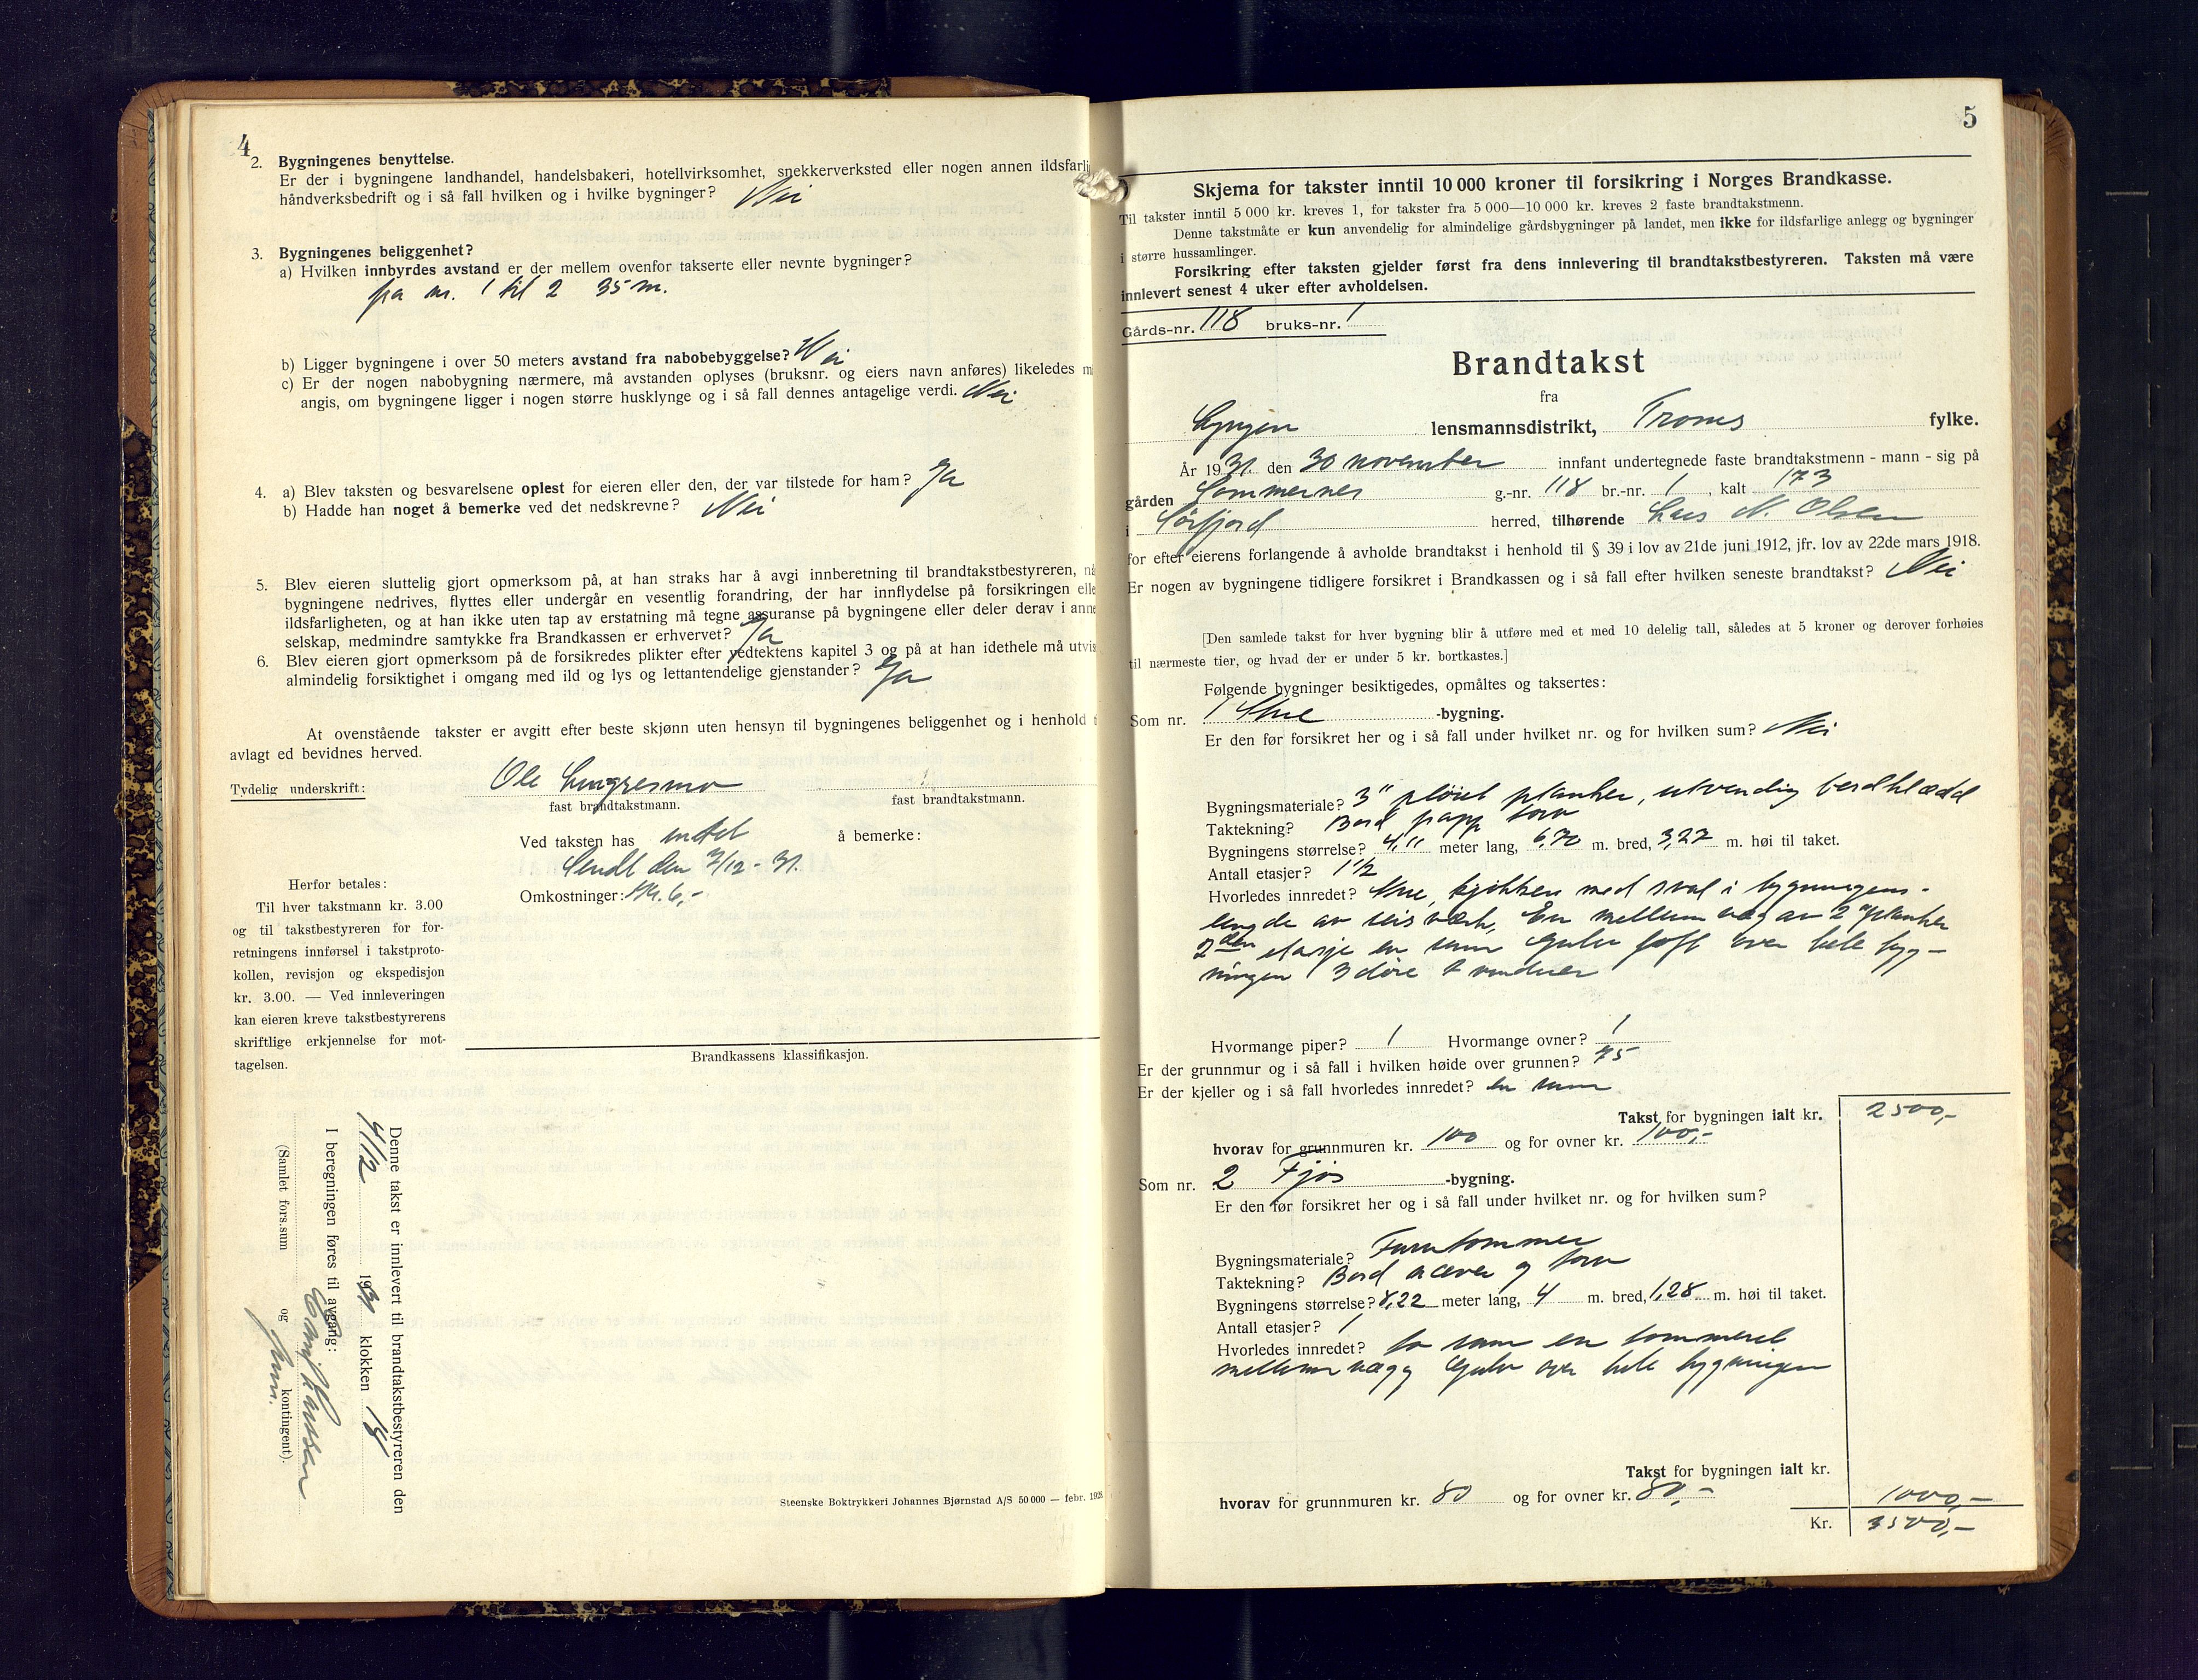 4
2. Bygningenes benyttelse.
Er der i bygningene landhandel, handelsbakeri, hotellvirksomhet, snekkerverksted eller nogen annen ildsfarli
håndverksbedrift og i så fall hvilken og i hvilke bygninger? Nei
3. Bygningenes beliggenhet?
a) Hvilken innbyrdes avstand er der mellem ovenfor takserte eller nevnte bygninger?
fra nr. 1 til 2 35 m.
b) Ligger bygningene i over 50 meters avstand fra nabobebyggelse? Nei
c) Er der nogen nabobygning nærmere, må avstanden oplyses (bruksnr. og eiers navn anføres) likeledes m
angis, om bygningene ligger i nogen større husklynge og i så fall dennes antagelige verdi. Nei
4. a) Blev taksten og besvarelsene oplest for eieren eller den, der var tilstede for ham? Ja
b) Hadde han noget å bemerke ved det nedskrevne? Nei
5. Blev eieren sluttelig gjort opmerksom på, at han straks har å avgi innberetning til brandtakstbestyreren, nå
bygningene nedrives, flyttes eller undergår en vesentlig forandring, der har innflydelse på forsikringen elle
ildsfarligheten, og at han ikke uten tap av erstatning må tegne assuranse på bygningene eller deler derav i anne
selskap, medmindre samtykke fra Brandkassen er erhvervet? Ja
6. Blev eieren gjort opmerksom på de forsikredes plikter efter vedtektens kapitel 3 og på at han idethele må utvis
almindelig forsiktighet i omgang med ild og lys og lettantendelige gjenstander? Ja
At ovenstående takster er avgitt efter beste skjønn uten hensyn til bygningenes beliggenhet og i henhold t
avlagt ed bevidnes herved.
Tydelig underskrift: Ole
fast brandtakstmann. fast brandtakstmann.
Ved taksten has intet å bemerke:
Sendt den 3/12 - 31.
Omkostninger: Kr. 6,-
Herfor betales:
Til hver takstmann kr. 3.00
og til takstbestyreren for for-
retningens innførsel i takstproto-
kollen, revisjon og ekspedisjon
kr. 3.00. — Ved innleveringen
kan eieren kreve takstbestyrerens
skriftlige erkjennelse for mot-
tagelsen.
Brandkassens klassifikasjon.
Denne takst er innlevert til brandtakstbestyreren den
4/12 1931 klokken 14
I beregningen føres til avgang:
(Samlet fors.sum og kontingent).
Steenske Boktrykkeri Johannes Bjørnstad A/S 50 000 — febr. 1928
5
Skjema for takster inntil 10 000 kroner til forsikring i Norges Brandkasse.
Til takster inntil 5 000 kr. kreves 1, for takster fra 5 000—10 000 kr. kreves 2 faste brandtakstmenn.
Denne takstmåte er kun anvendelig for almindelige gårdsbygninger på landet, men ikke for ildsfarlige anlegg og bygninger
i større hussamlinger.
Forsikring efter taksten gjelder først fra dens innlevering til brandtakstbestyreren. Taksten må være
innlevert senest 4 uker efter avholdelsen.
Gårds-nr. 118 bruks-nr. 1
Brandtakst
fra
Lyngen lensmannsdistrikt, Troms fylke.
År 1931 den 30 november innfant undertegnede faste brandtakstmenn - mann - sig på
gården Sommernes g.-nr. 118 br.-nr. 1, kalt 173
i Sørfjord herred, tilhørende Lars N. Olsen
for efter eierens forlangende å avholde brandtakst i henhold til § 39 i lov av 21de juni 1912, jfr. lov av 22de mars 1918.
Er nogen av bygningene tidligere forsikret i Brandkassen og i så fall efter hvilken seneste brandtakst? Nei
[Den samlede takst for hver bygning blir å utføre med et med 10 delelig tall, således at 5 kroner og derover forhøies
til nærmeste tier, og hvad der er under 5 kr. bortkastes.]
Følgende bygninger besiktigedes, opmåltes og taksertes:
Som nr. 1 Stue -bygning.
Er den før forsikret her og i så fall under hvilket nr. og for hvilken sum? Nei
Bygningsmateriale? 3" pløiet planker, utvendig bordklædd
Taktekning? Bord papp torv
Bygningens størrelse? 4,11 meter lang, 6,70 m. bred, 3,27 m. høi til taket.
Antall etasjer? 1 1/2
Hvorledes innredet? Stue, kjøkken med sval i bygningens-
lengde av reisværk, En mellemvæg av 2" planker
2den etasje en rum Gulv loft over hele byg-
ningen 3 døre vinduer
Hvormange piper? 1 Hvormange ovner? 1
Er der grunnmur og i så fall i hvilken høide over grunnen? 75
Er der kjeller og i så fall hvorledes innredet? en rum
Takst for bygningen ialt kr. 2500,-
hvorav for grunnmuren kr. 100 og for ovner kr. 100,-
Som nr. 2 Fjøs -bygning.
Er den før forsikret her og i så fall under hvilket nr. og for hvilken sum?
Bygningsmateriale? Furutømmer
Taktekning? Bord næver og torv
Bygningens størrelse? 8,22 meter lang, 4 m. bred, 1,28 m. høi til taket.
Antall etasjer? 1
Hvorledes innredet? to rum en tømmeret
mellemvægg Gulv over hele bygningen
Takst for bygningen ialt kr.
hvorav for grunnmuren kr. 80 og for ovner kr. 80,- 1000,-
Kr. 3500,-